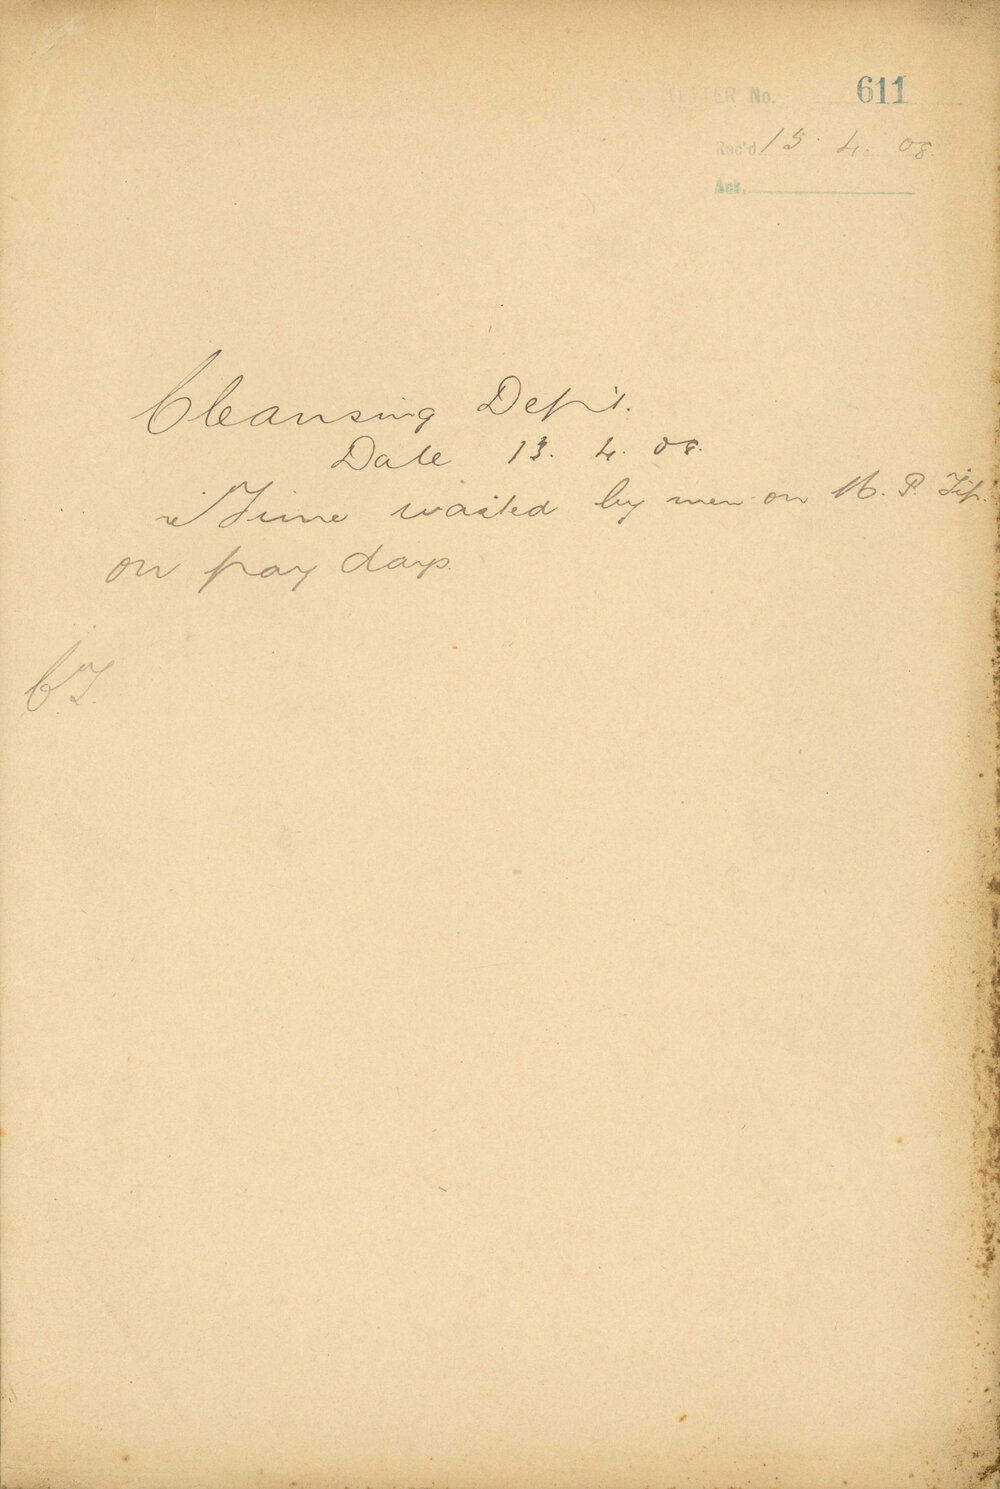 LETTER No. 611
Rec'd 15. 4. 08.
Ack.
Cleansing Dep't.
Date 13. 4. 08.
Time wasted by men on M. P. Tip.
on pay days.
C. T.